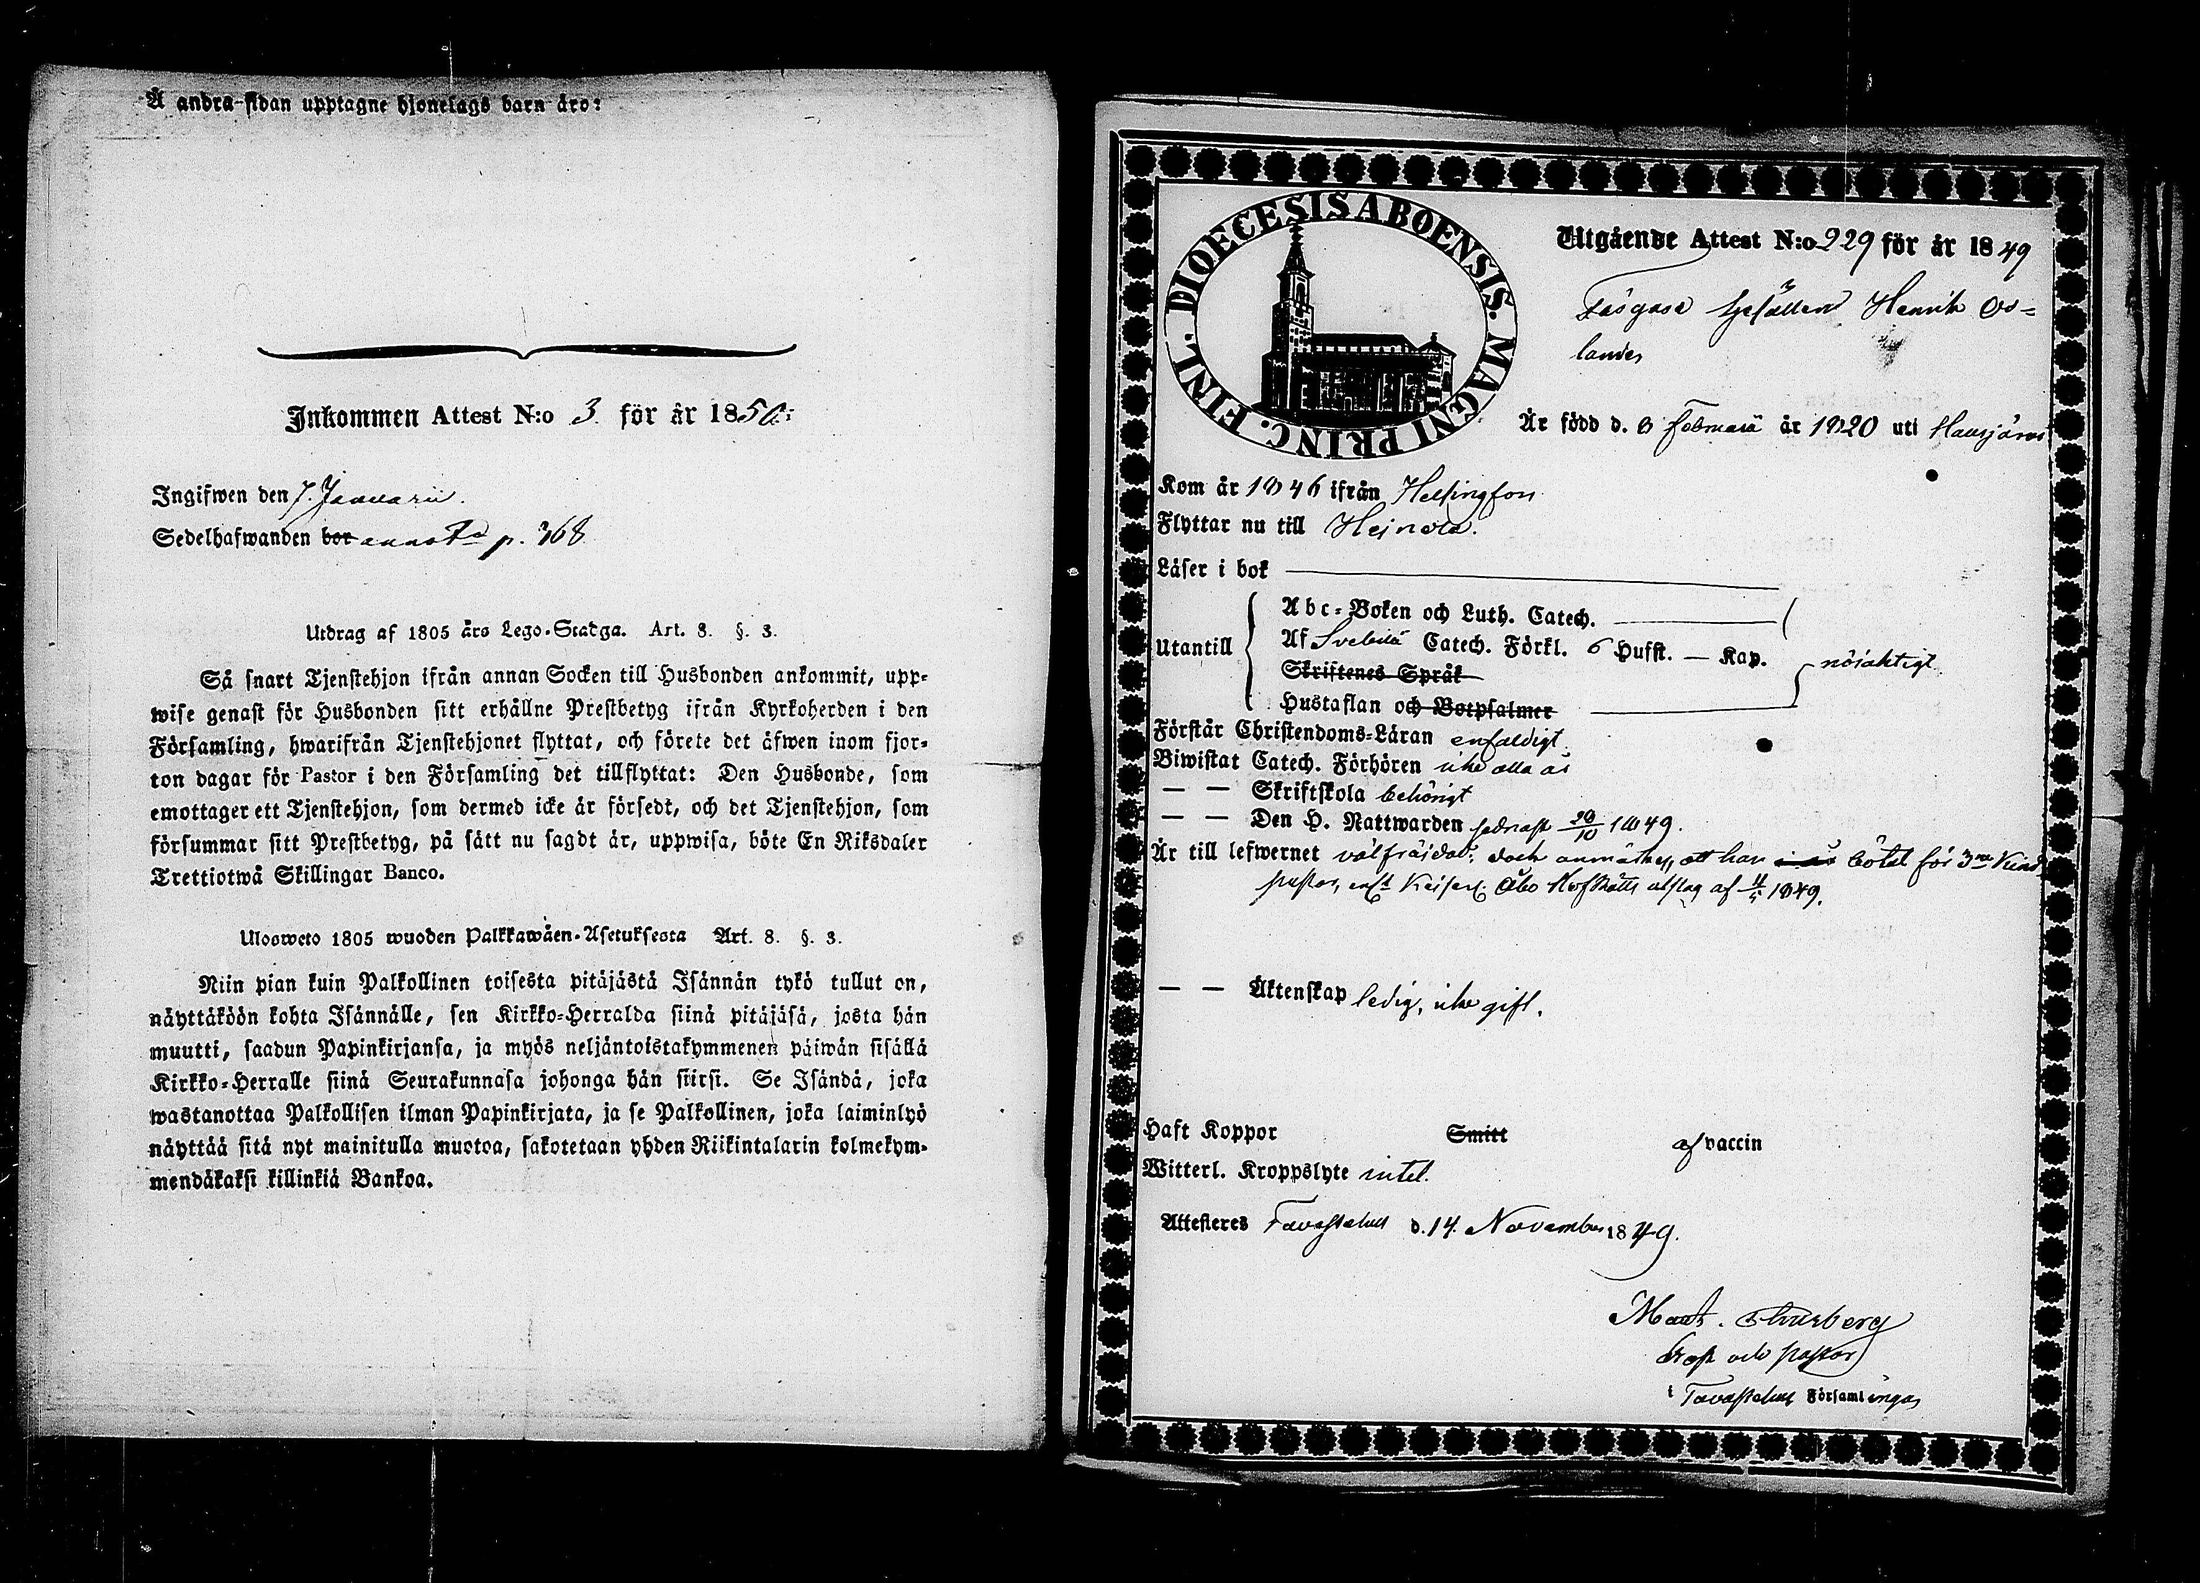 Å andra sidan upptagne hjonelags barn äro:
Inkommen Attest N:o 3 för år 1850:
Ingifwen den 7. Januarii.
Sedelhafwanden bor annot. p. 368
Utdrag af 1805 års Lego-Stadga. Art. 8. §. 3.
Så snart Tjenstehjon ifrån annan Socken till Husbonden ankommit, upp-
wise genast för Husbonden sitt erhållne Prestbetyg ifrån Kyrkoherden i den
Församling, hwarifrån Tjenstehjonet flyttat, och förete det äfwen inom fjor-
ton dagar för Pastor i den Församling det tillflyttat: Den Husbonde, som
emottager ett Tjenstehjon, som dermed icke är försedt, och det Tjenstehjon, som
försummar sitt Prestbetyg, på sätt nu sagdt är, uppwisa, böte En Riksdaler
Trettiotwå Skillingar Banco.
Ulosweto 1805 wuoden Palkkawäen-Asetuksesta Art. 8. §. 3.
Niin pian kuin Palkollinen toisesta pitäjästä Isännän tykö tullut on,
näyttäköön kohta Isännälle, sen Kirkko-Herralda siinä pitäjäsä, josta hän
muutti, saadun Papinkirjansa, ja myös neljäntoistakymmenen päiwän sisällä
Kirkko-Herralle siinä Seurakunnasa johonga hän siirsi. Se Isändä, joka
wastanottaa Palkollisen ilman Papinkirjata, ja se Palkollinen, joka laiminlyö
näyttää sitä nyt mainitulla muotoa, sakotetaan yhden Riikintalarin kolmekym-
mendäkaksi killinkiä Bankoa.
DIOECESIS ABOENSIS. MAGNI PRINC. FINL.
Utgående Attest N:o 229 för år 1849
Gesällen Henrik Os=
lander
Är född d. 8 Februarii år 1820 uti Hausjärvi
Kom år 1846 ifrån Helsingfors
Flyttar nu till Heinola.
Läser i bok
Utantill
Abc-Boken och Luth. Catech.
Af Svebelii Catech. Förkl. 6 Hufst. — Kap. nöjaktigt
Skriftenes Språk
Hustaflan och Botpsalmer
Förstår Christendoms-Läran enfaldigt
Biwistat Catech. Förhören icke alla år
— — Skriftskola behörigt
— — Den H. Nattwarden sednast 20/10 1849.
Är till lefwernet välfräjdad; dock anmärkes, att han bötat för 3ne
enl. Keiserl. Åbo Hofrätts utslag af 11/5 1849.
— — Äktenskap ledig, icke gift.
Haft Koppor Smitt af vaccin
Witterl. Kroppslyte intet.
Attesteres Tavastehus d. 14. November 1849.
Prost och pastor
i Tavastehus Församlingar